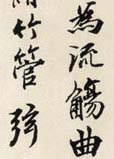 為流觴曲
竹管弦